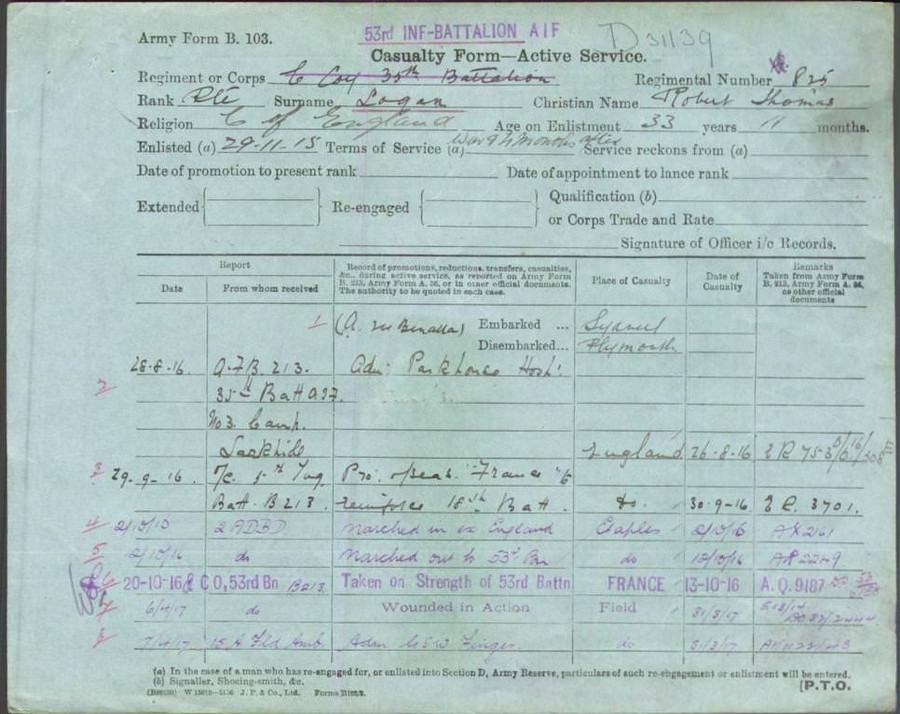 Army Form B. 103.
53rd INF-BATTALION AIF
D 31139
Casualty Form—Active Service.
Regiment or Corps C Coy 35th Battalion Regimental Number 825
Rank Pte Surname Logan Christian Name Robert Thomas
Religion C of England Age on Enlistment 33 years 11 months.
Enlisted (a) 29-11-15 Terms of Service (a) War & 4 months after Service reckons from (a)
Date of promotion to present rank Date of appointment to lance rank
Extended Re-engaged Qualification (b)
or Corps Trade and Rate
Signature of Officer i/c Records.
Report
Date From whom received
Record of promotions, reductions, transfers, casualties, &c., during active service, as reported on Army Form B. 213, Army Form A. 36, or in other official documents. The authority to be quoted in each case.
Place of Casualty
Date of Casualty
Remarks
Taken from Army Form B. 213, Army Form A. 36, or other official documents
1 Embarked ... Sydney
Disembarked... Plymouth
2 28-8-16. A.F.B. 213. Adm: Parkhouse Hosp.
35th Batt AIF.
No 3. Camp.
Larkhill England 26-8-16
3 29-9-16. 5th Trng Pro. o/seas France to
Batt. B213. reinforce 18th Batt. do. 30-9-16 3701.
4 2 ADBD Marched in ex England Etaples 2/10/16
5 12/10/16 do Marched out to 53rd Bn do 12/10/16
6 20-10-16 C O, 53rd Bn B213 Taken on Strength of 53rd Battn FRANCE 13-10-16 A.Q.9187
7 6/4/17 do Wounded in Action Field 31/3/17
8 7/4/17 15 A Fld Amb. Adm GSW Finger. do 31/3/17
(a) In the case of a man who has re-engaged for, or enlisted into Section D, Army Reserve, particulars of such re-engagement or enlistment will be entered.
(b) Signaller, Shoeing-smith, &c.
J. P. & Co., Ltd.
[P.T.O.